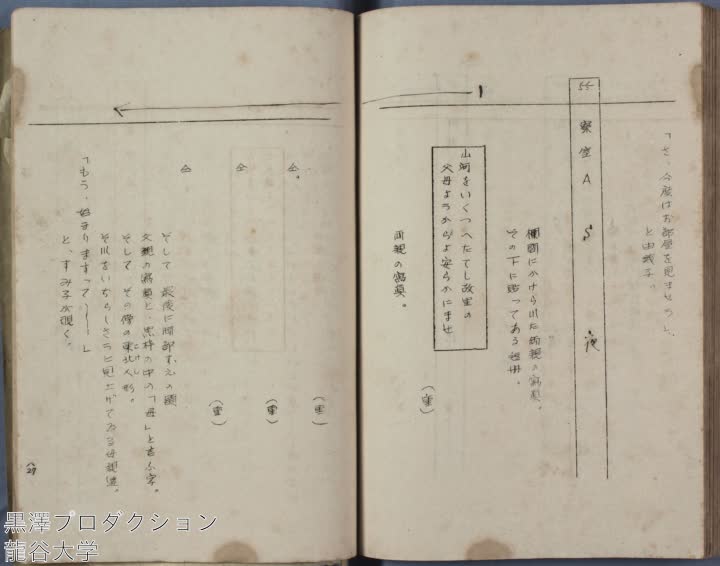 「さ、今度はお部屋を見ませう」
と由
寮室A S 夜
欄間にかけられた両親の寫真。
その下に貼ってある短冊。
山河をいくつへだてし故里の
父母ようからよ安らかにませ
(重)
両親の寫真。
仝。
(重)
仝
(重)
仝
(重)
そして 最後に阿部すえの顔
父親の寫真と、黒枠の中の「母」と言ふ字。
そして その傍の東北人形。
こけし
それをいぢらしさうに見上げてゐる母親達。
「もう、始まりますつて――」
と、すみ子が覗く。
黒澤プロダクション
龍谷大学